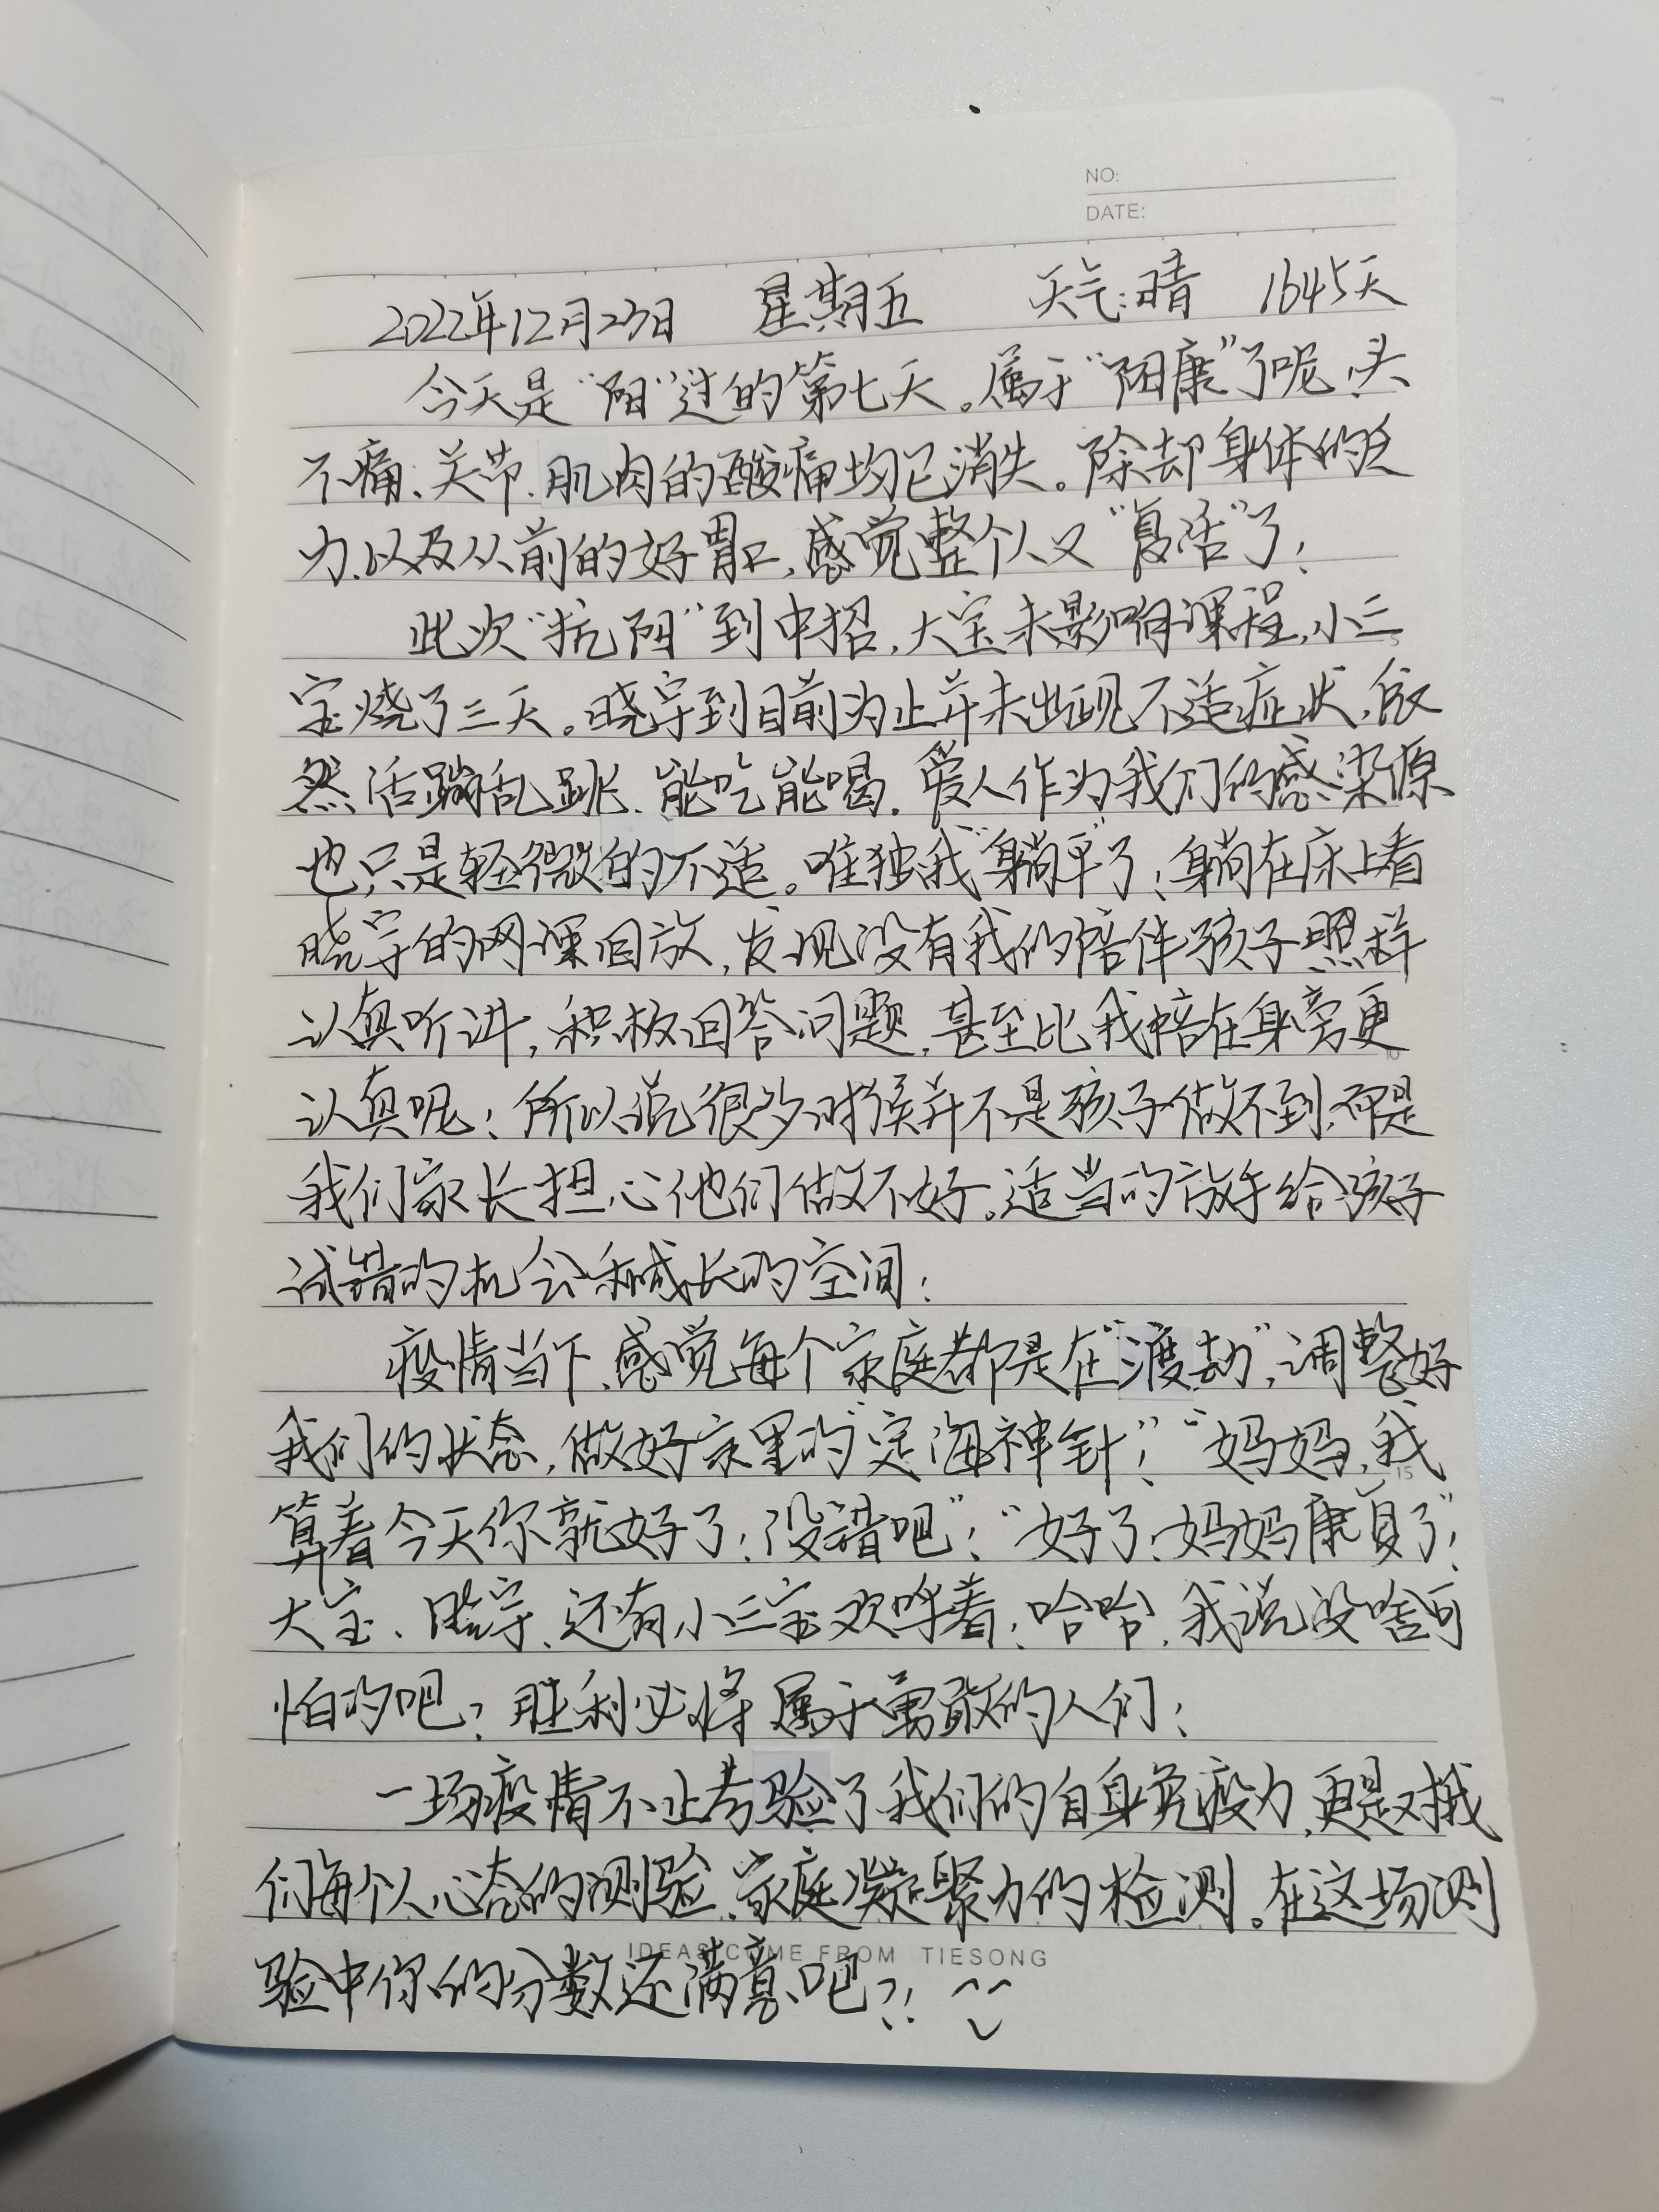 NO:
DATE:
2022年12月23日 星期五 天气:晴 1645天
今天是“阳”过的第七天。属于“阳康”了呢,头
不痛、关节、肌肉的酸痛均已消失。除却身体的乏
力,以及从前的好胃口,感觉整个人又“复活”了!
此次“抗阳”到中招,大宝未影响课程,小三
宝烧了三天。晓宇到目前为止并未出现不适症状,依
然活蹦乱跳、能吃能喝。爱人作为我们的感染源
也只是轻微的不适。唯独我“躺平”了!躺在床上看
晓宇的网课回放,发现没有我的陪伴孩子照样
认真听讲,积极回答问题,甚至比我陪在身旁更
认真呢!所以说很多时候并不是孩子做不到,而是
我们家长担心他们做不好。适当的放手给孩子
试错的机会和成长的空间!
疫情当下,感觉每个家庭都是在“渡劫”,调整好
我们的状态,做好家里的“定海神针”!“妈妈,我
算着今天你就好了!没错吧”!“好了!妈妈康复了”!
大宝、晓宇、还有小三宝欢呼着!哈哈,我说没啥可
怕的吧?胜利必将属于勇敢的人们!
一场疫情不止考验了我们的自身免疫力,更是对我
们每个人心态的测验、家庭凝聚力的检测。在这场测
验中你的分数还满意吧?!
IDEAS COME FROM TIESONG
5
10
15